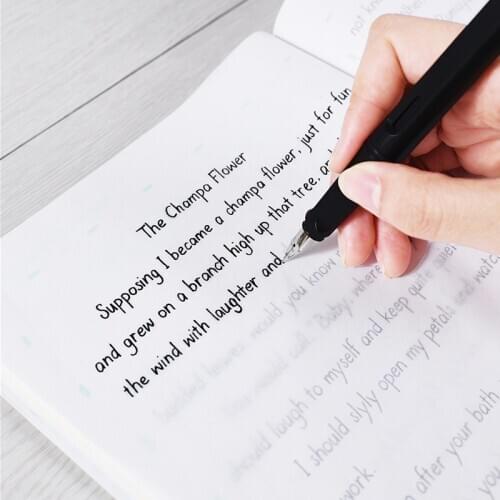 The Champa Flower
Supposing I became a champa flower, just for fun,
and grew on a branch high up that tree, and
the wind with laughter and
would you know
Baby, where
should laugh to myself and keep quite
I should slyly open my petals and watch
after your bath
work.